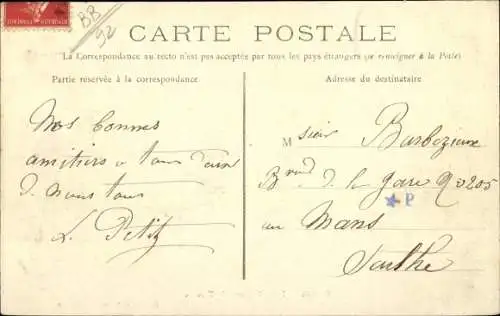 BB
92
CARTE POSTALE
La Correspondance au recto n'est pas acceptée par tous les pays étrangers (se renseigner à la Poste)
Partie réservée à la correspondance.
Adresse du destinataire
Nos bonnes
amitiers a tous deux
d. nous tous
L. Petit
Msieur Barbezieux
Bvard d. la gare No 205
P
au Mans
Sarthe